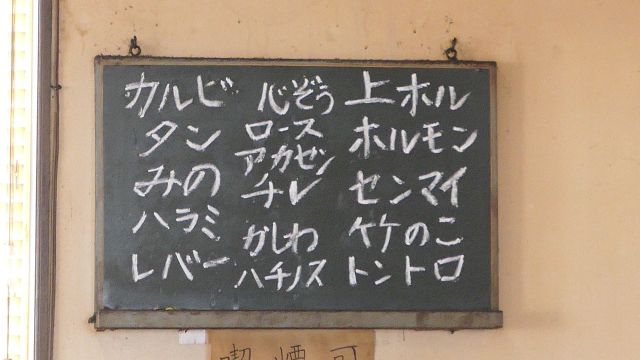 上ホル
ホルモン
センマイ
ケケのこ
トントロ
心ぞう
ロース
アカセン
チレ
かしわ
ハチノス
カルビ
タン
みの
ハラミ
レバー
喫煙可